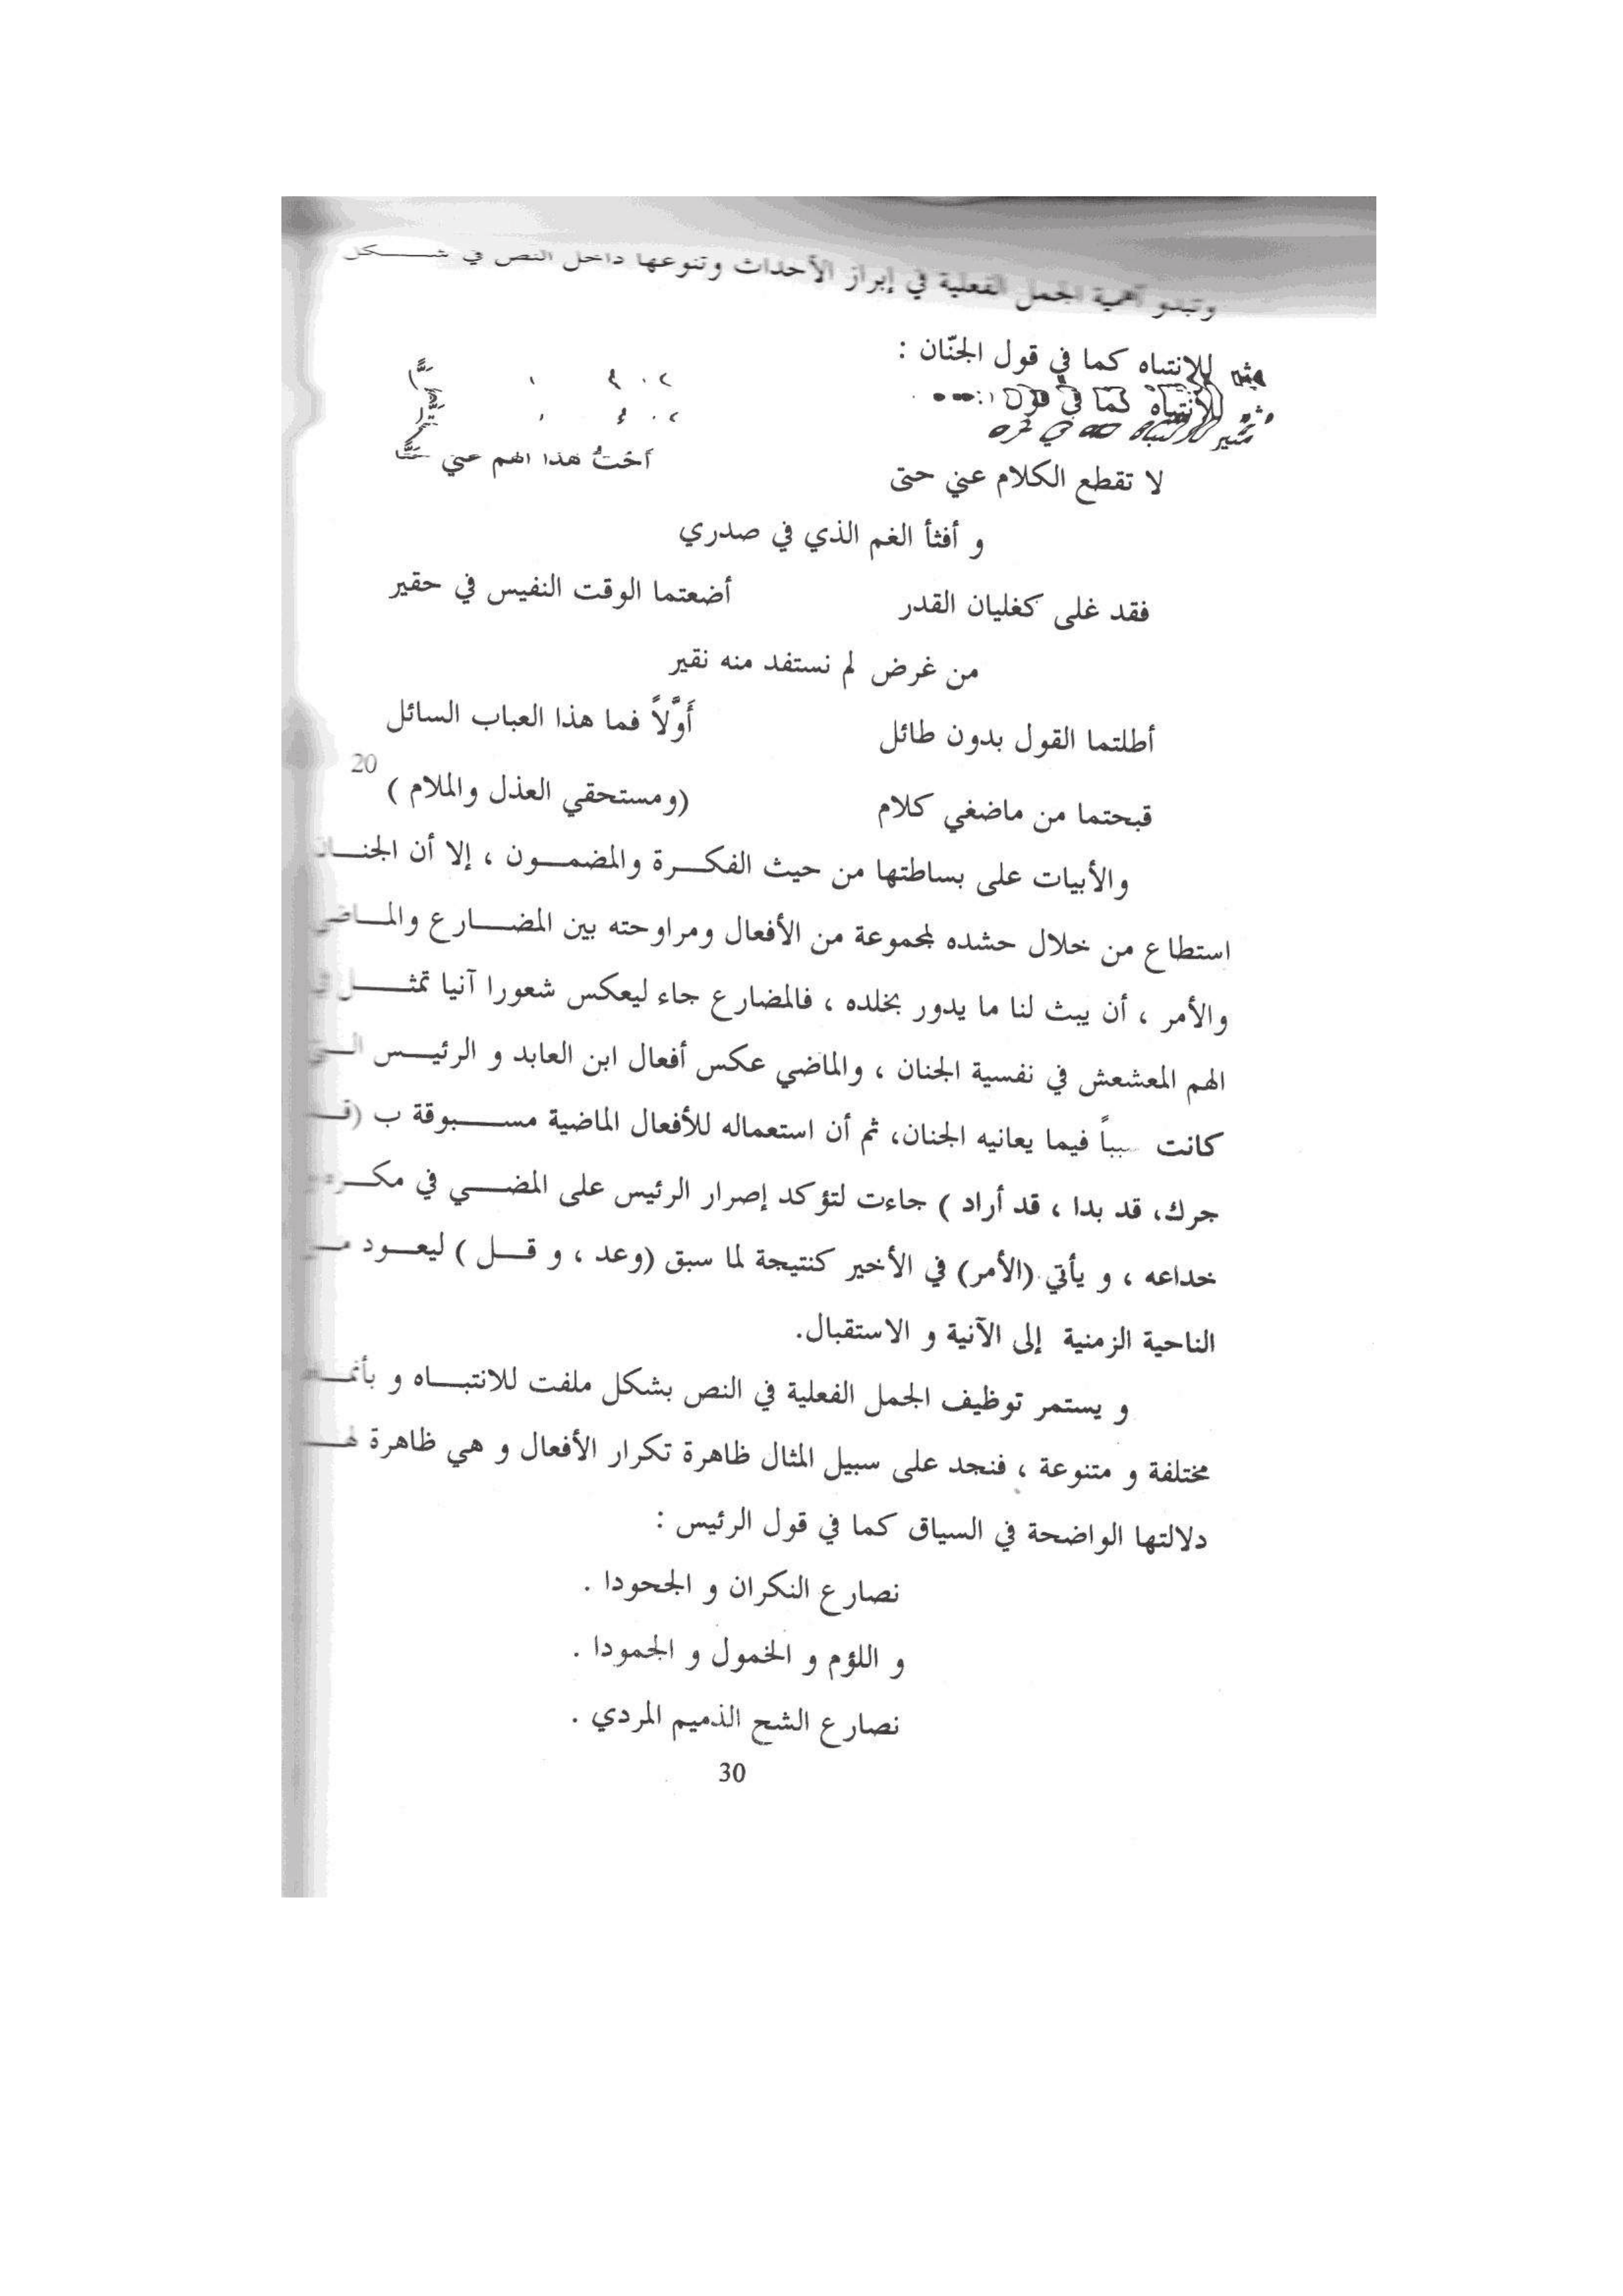 وتبدو أهمية الجمل الفعلية في إبراز الأحداث وتنوعها داخل النص في شكل
مثير للانتباه كما في قول الجنّان :
لا تقطع الكلام عني حتى أختُ هذا الهم عني
و أفثأ الغم الذي في صدري
فقد غلى كغليان القدر أضعتما الوقت النفيس في حقير
من غرض لم نستفد منه نقير
أطلتما القول بدون طائل أَوَّلاً فما هذا العباب السائل
قبحتما من ماضغي كلام (ومستحقي العذل والملام ) 20
والأبيات على بساطتها من حيث الفكرة والمضمون ، إلا أن الجنان
استطاع من خلال حشده لمجموعة من الأفعال ومراوحته بين المضارع والماضي
والأمر ، أن يبث لنا ما يدور بخلده ، فالمضارع جاء ليعكس شعورا آنيا تمثل في
الهم المعشعش في نفسية الجنان ، والماضي عكس أفعال ابن العابد و الرئيس التي
كانت سبباً فيما يعانيه الجنان، ثم أن استعماله للأفعال الماضية مسبوقة ب (قد
جرك، قد بدا ، قد أراد ) جاءت لتؤكد إصرار الرئيس على المضي في مكره و
خداعه ، و يأتي (الأمر) في الأخير كنتيجة لما سبق (وعد ، و قل ) ليعود من
الناحية الزمنية إلى الآنية و الاستقبال.
و يستمر توظيف الجمل الفعلية في النص بشكل ملفت للانتباه و بأنماط
مختلفة و متنوعة ، فنجد على سبيل المثال ظاهرة تكرار الأفعال و هي ظاهرة لها
دلالتها الواضحة في السياق كما في قول الرئيس :
نصارع النكران و الجحودا .
و اللؤم و الخمول و الجمودا .
نصارع الشح الذميم المردي .
30